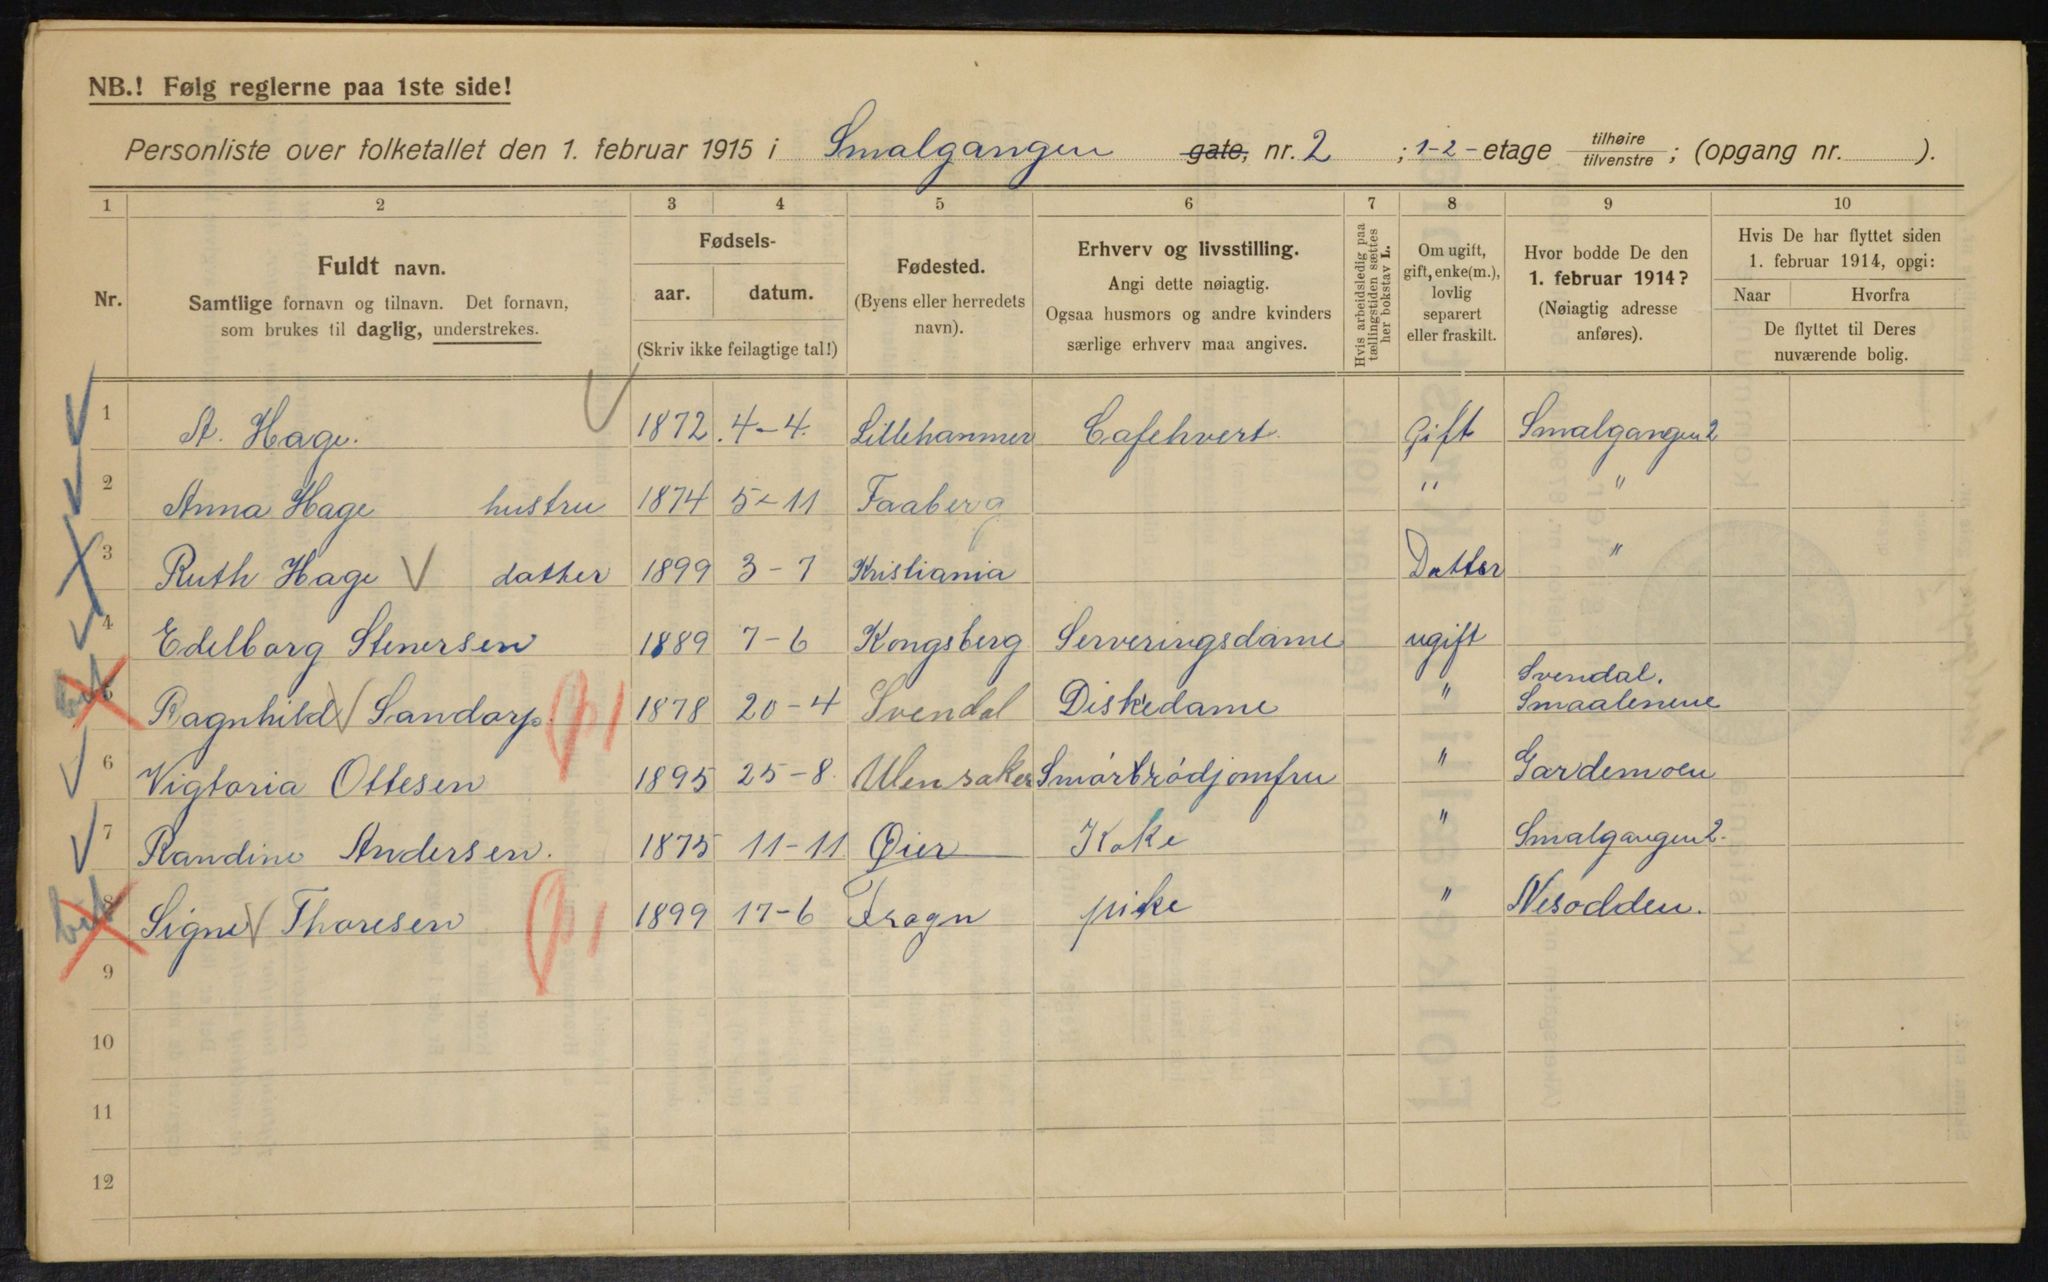 NB.! Følg reglerne paa 1ste side!
Personliste over folketallet den 1. februar 1915 i Smalgangen gate, nr. 2 ; 1-2- etage tilhøire tilvenstre ; (opgang nr. ).
1 2 3 4 5 6 7 8 9 10
Nr.
Fuldt navn.
Samtlige fornavn og tilnavn. Det fornavn,
som brukes til daglig, understrekes.
Fødsels-
aar. datum.
(Skriv ikke feilagtige tal!)
Fødested.
(Byens eller herredets
navn).
Erhverv og livsstilling.
Angi dette nøiagtig.
Ogsaa husmors og andre kvinders
særlige erhverv maa angives.
Hvis arbeidsledig paa
tællingstiden sættes
her bokstav L.
Om ugift,
gift, enke(m.),
lovlig
separert
eller fraskilt.
Hvor bodde De den
1. februar 1914?
(Nøiagtig adresse
anføres).
Hvis De har flyttet siden
1. februar 1914, opgi:
Naar Hvorfra
De flyttet til Deres
nuværende bolig.
1 A. Hage. 1872 4-4. Lillehammer Cafehvert. Gift Smalgangen 2
2 Anna Hage hustru 1874 5-11 Faaberg " "
3 Ruth Hage datter 1899 3-7 Kristiania Datter "
4 Edelborg Stenersen 1889 7-6 Kongsberg Serveringsdame ugift
5 Ragnhild Sandorp. 1878 20-4 Svendal Diskedame " Svendal. Smaalenene
6 Vigtoria Ottesen 1895 25-8. Ulensaker Smørbrødjomfru " Gardemoen
7 Randine Andersen. 1875 11-11 Øier Koke " Smalgangen 2.
8 Signe Thoresen 1899 17-6 Frogn pike " Nesodden.
9
10
11
12